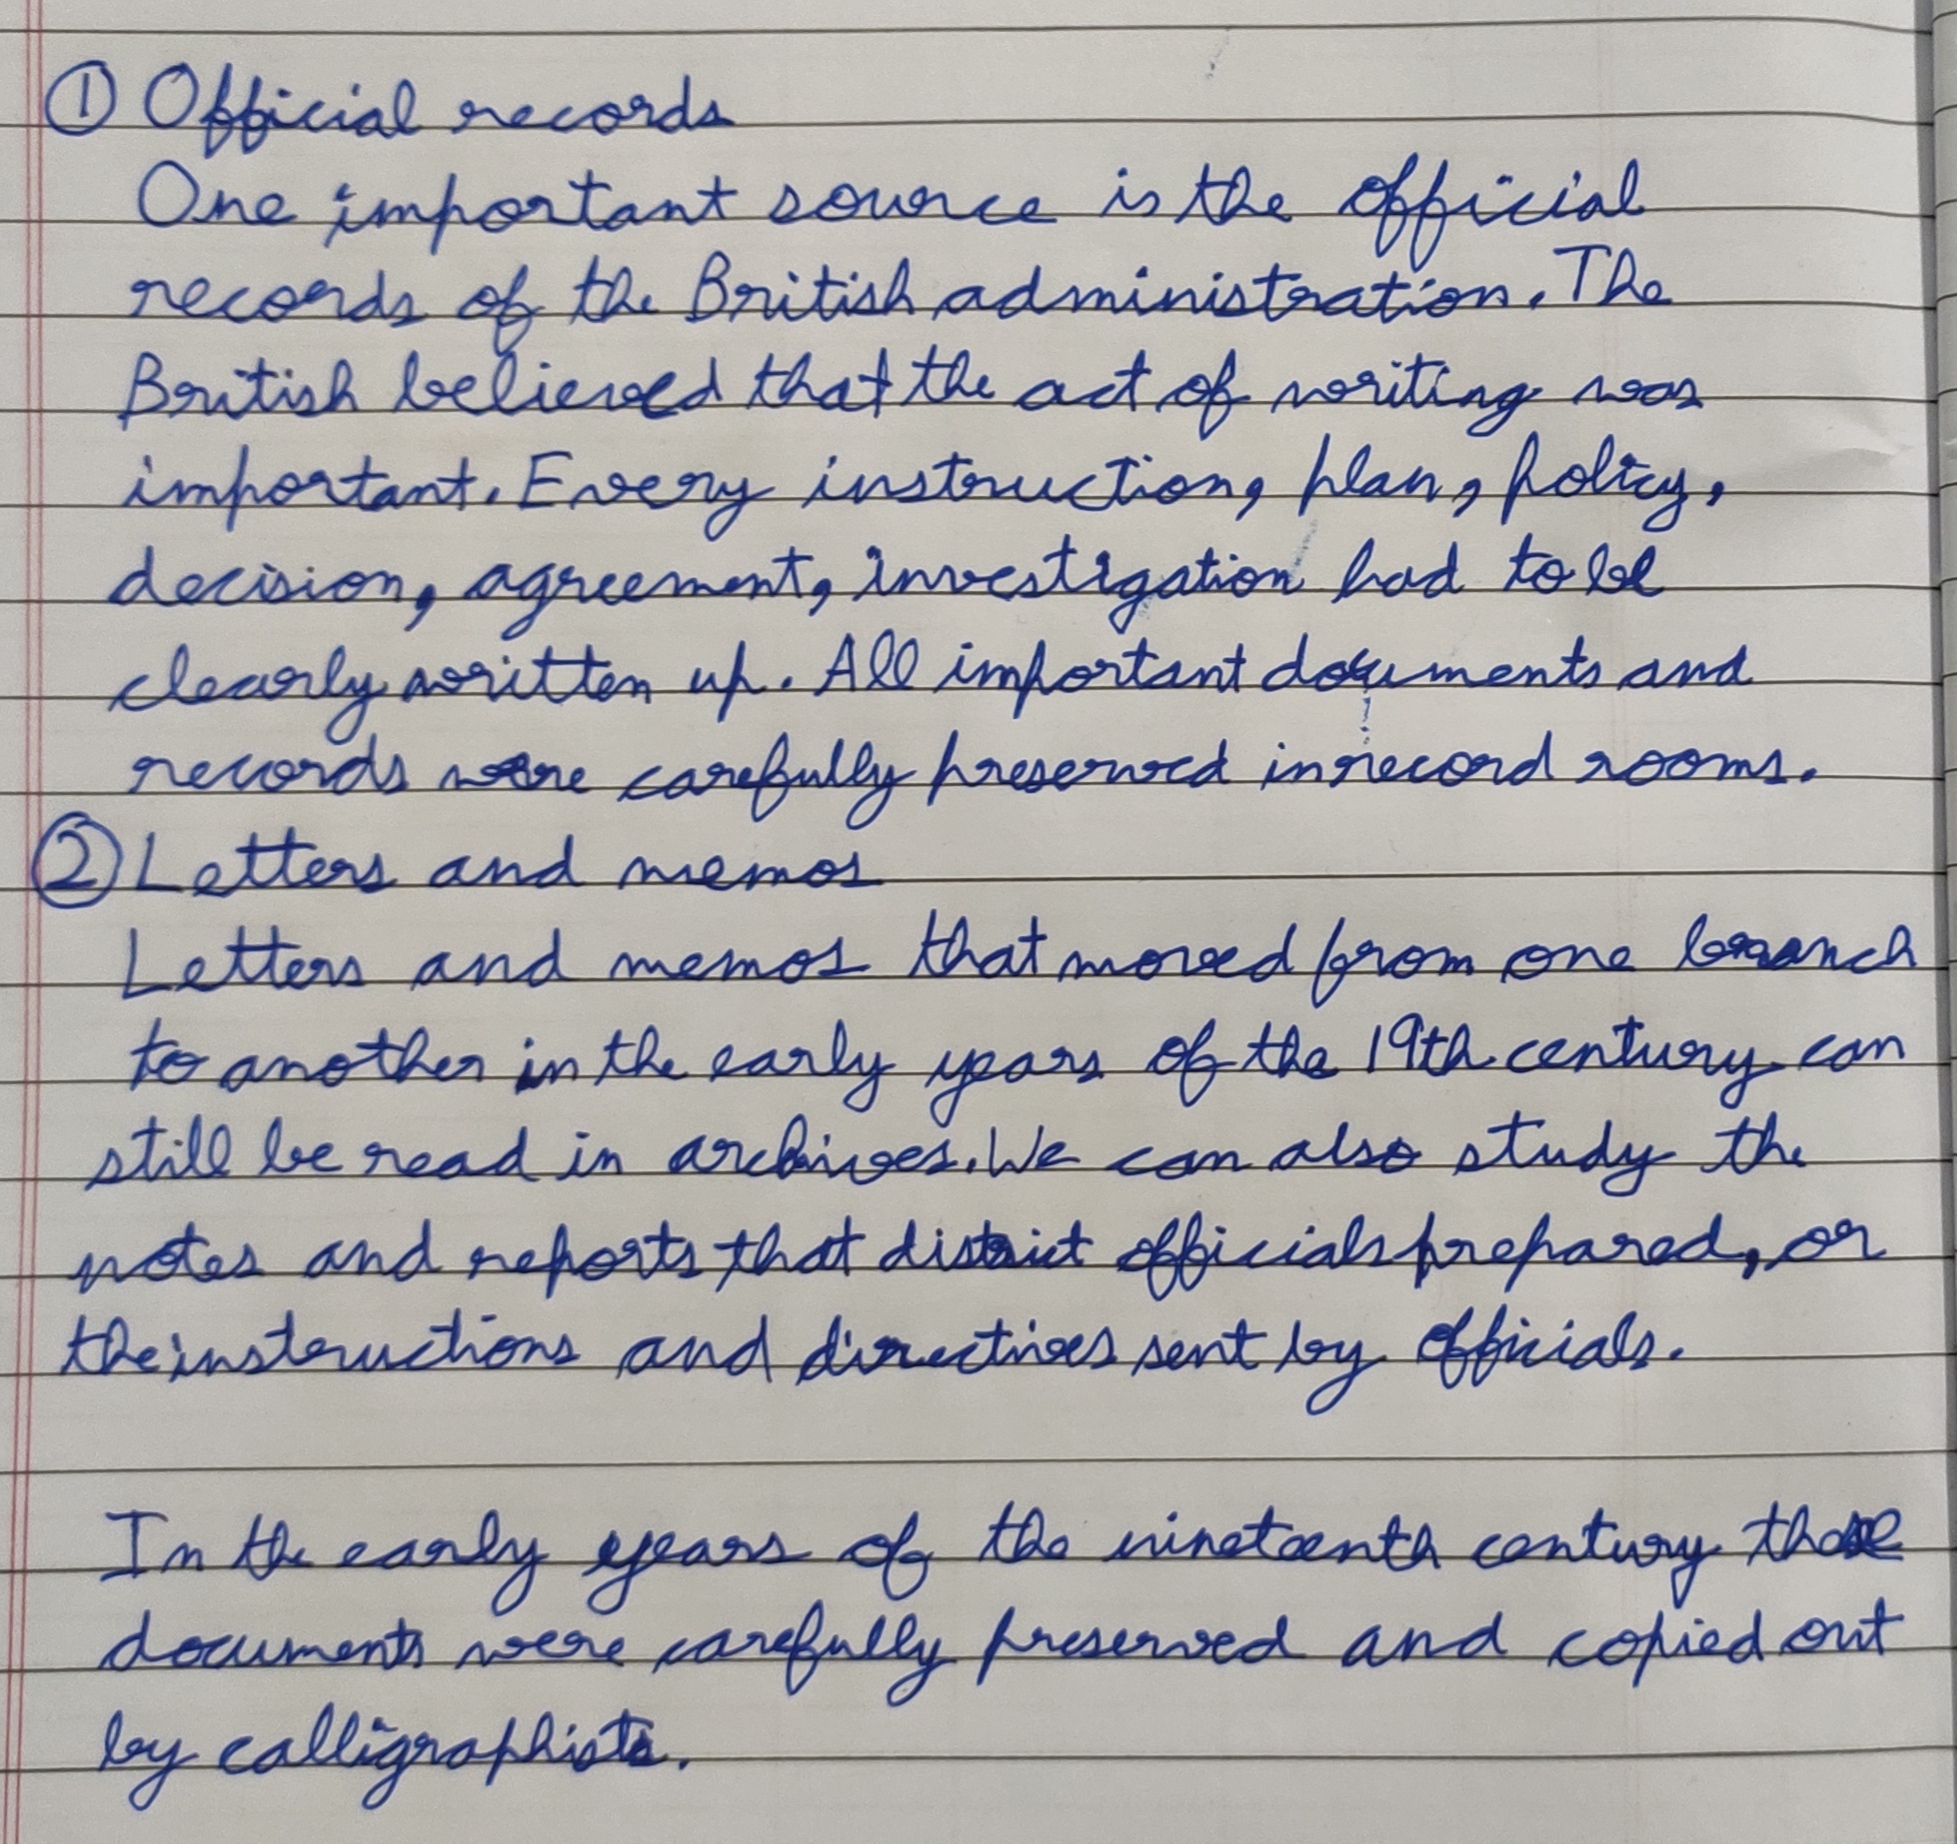 ① Official records
One important source is the official
records of the British administration. The
British believed that the act of writing was
important. Every instruction, plan, policy,
decision, agreement, investigation had to be
clearly written up. All important documents and
records were carefully preserved in record rooms.
② Letters and memos
Letters and memos that moved from one branch
to another in the early years of the 19th century can
still be read in archives. We can also study the
notes and reports that district officials prepared, or
the instructions and directives sent by officials.
In the early years of the nineteenth century these
documents were carefully preserved and copied out
by calligraphists.